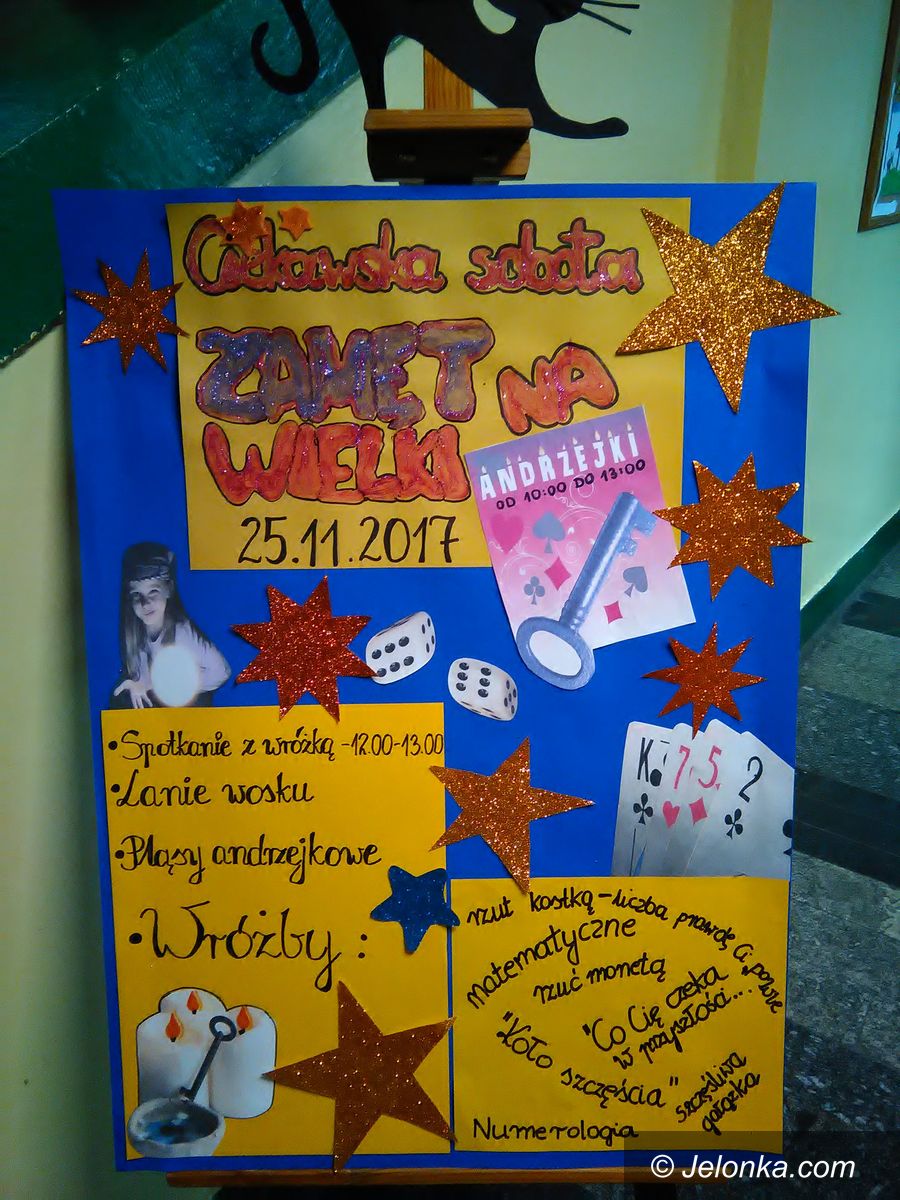 Ciekawska sobota
ZAMĘT NA
WIELKI
25.11.2017
ANDRZEJKI
OD 10:00 DO 13:00
•Spotkanie z wróżką -12.00-13.00
•Lanie wosku
•Pląsy andrzejkowe
•Wróżby:
K 7 5 2
rzut kostką - liczba prawdę Ci powie
matematyczne
rzuć monetą
"Co Cię czeka
w przyszłości...
"Koło szczęścia"
szczęśliwa
gałązka
Numerologia
© Jelonka.com